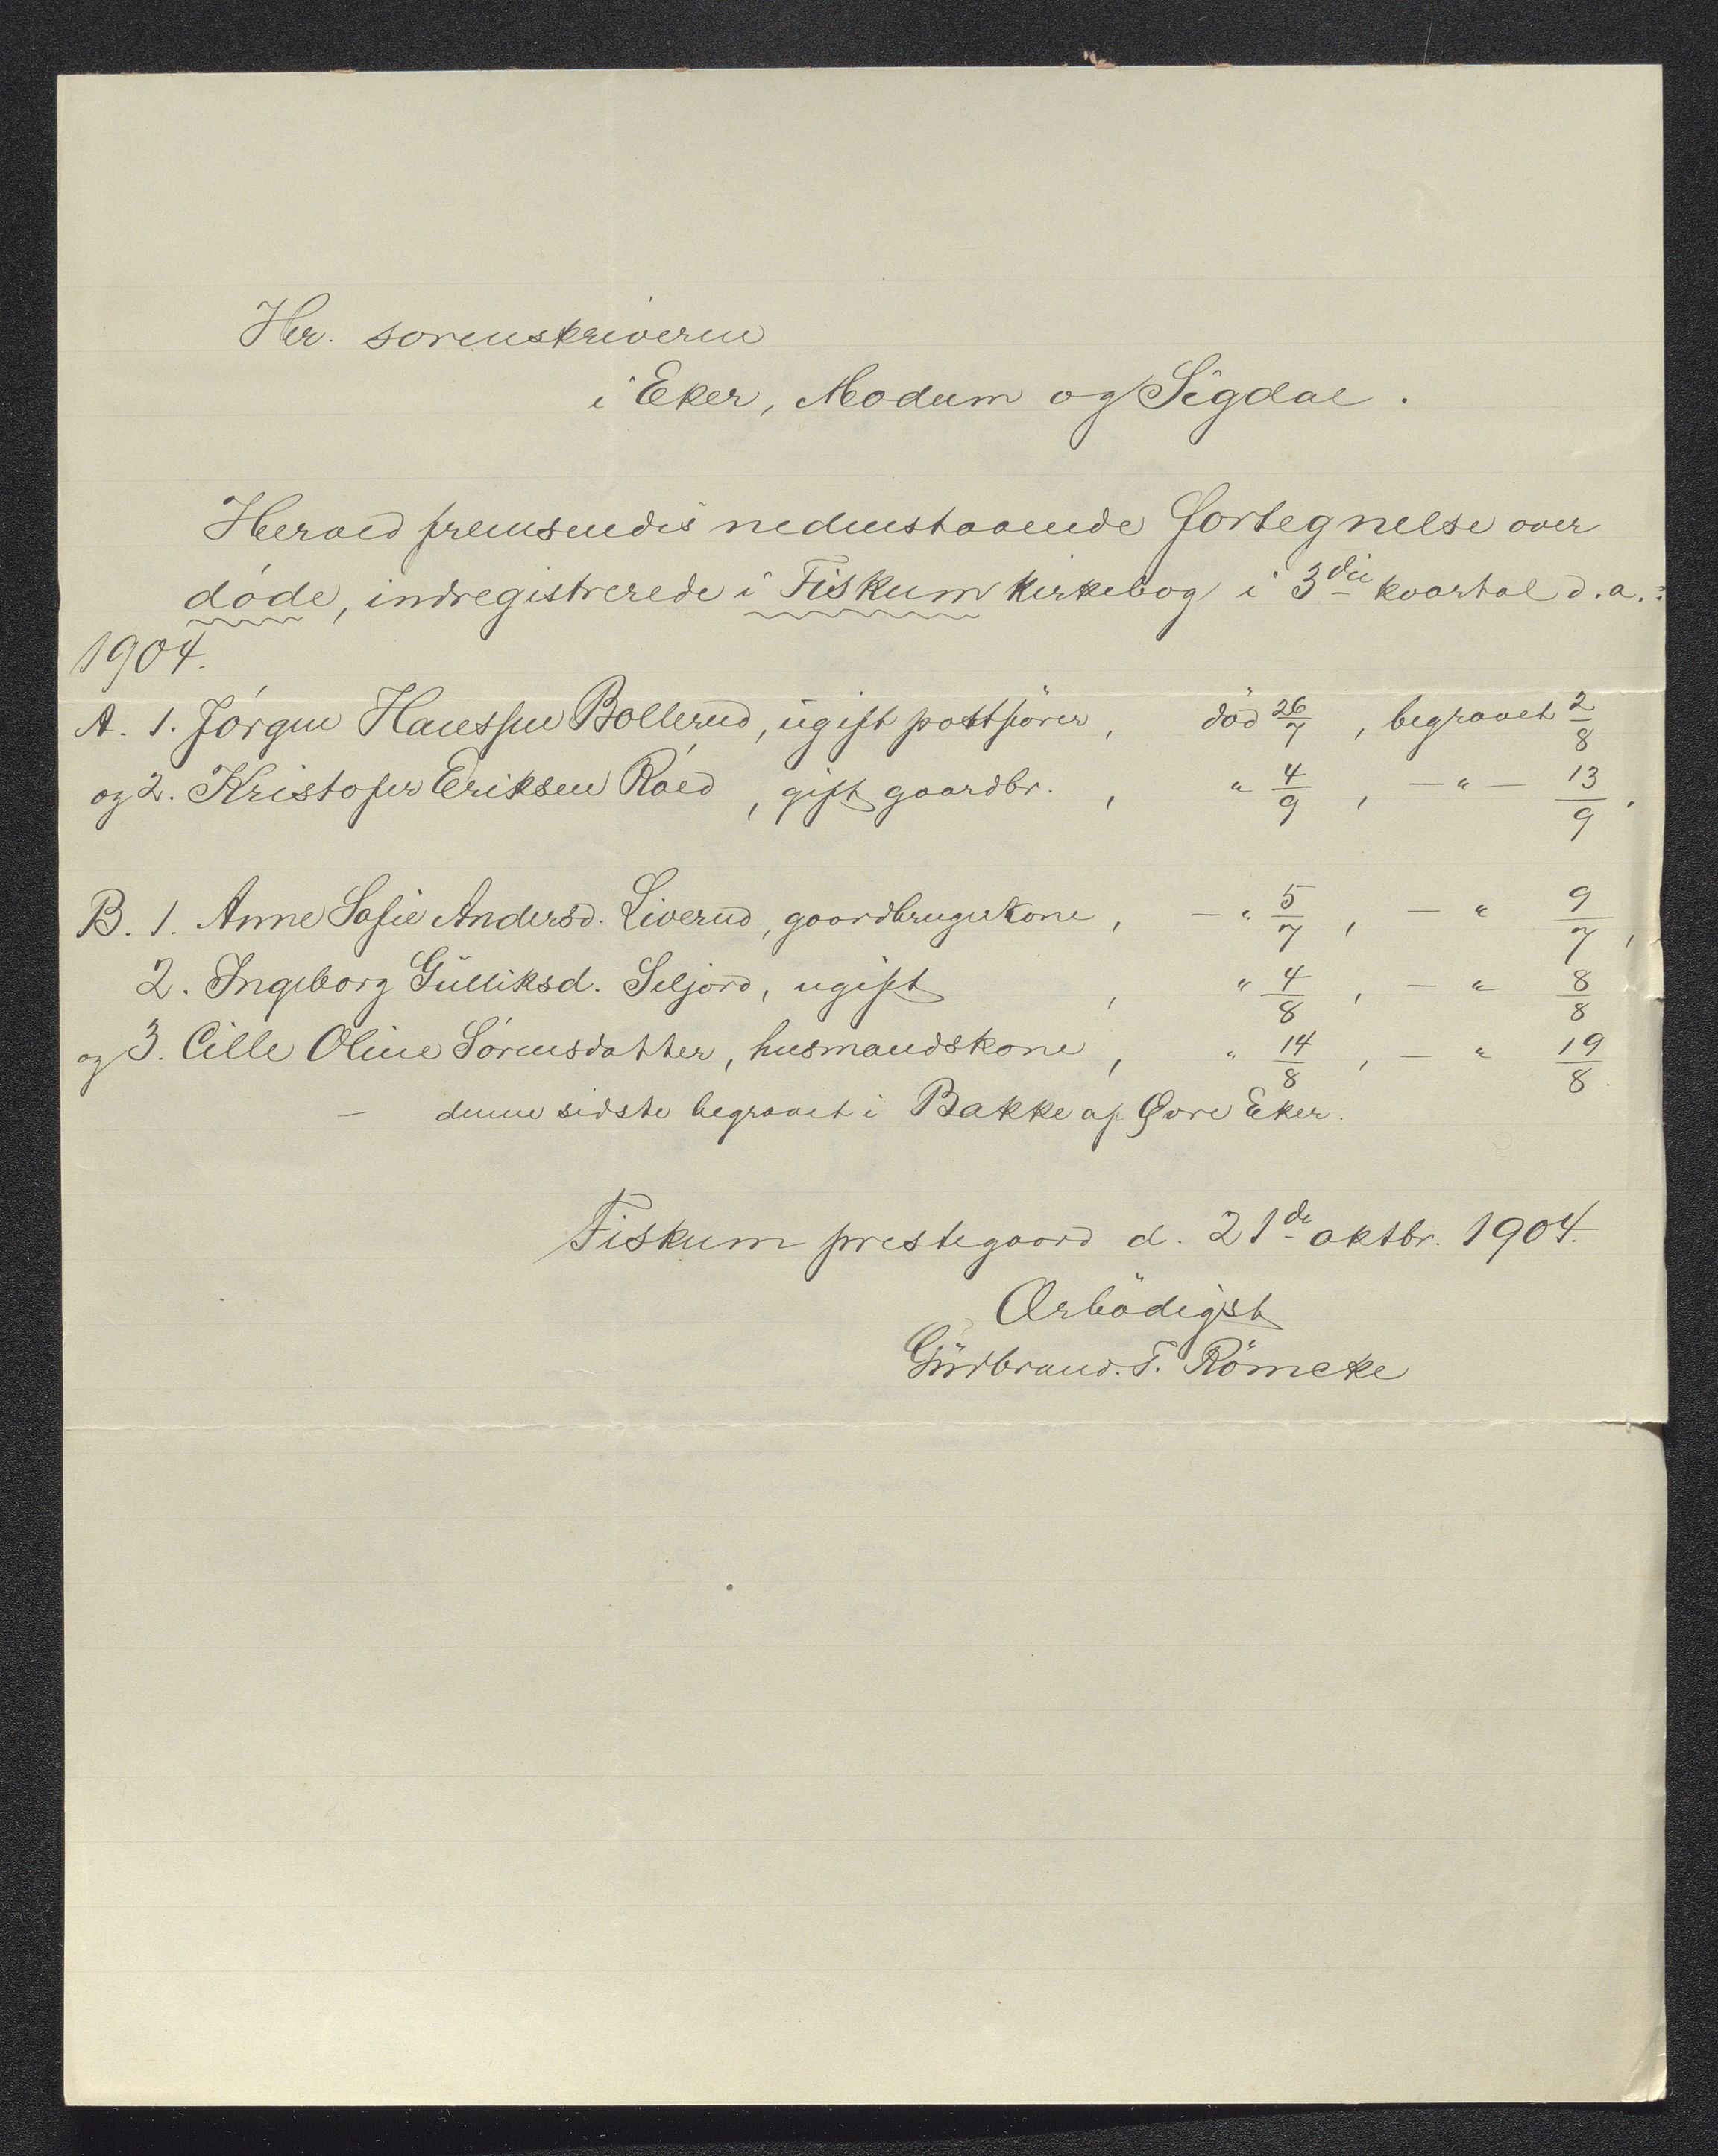 Hr. sorenskriveren
i Eker, Modum og Sigdal.
Herved fremsendes nedenstaaende fortegnelse over
døde, indregistrerede i Fiskum kirkebog i 3die kvartal d. a.:
1904.
A. 1. Jörgen Hanssen Bollerud, ugift postfører, död 26/7, begravet 2/8
og 2. Kristofer Eriksen Röed, gift gaardbr., " 4/9, — " — 13/9,
B. 1. Anne Sofie Andersd. Liverud, gaardbrugerkone, — " 5/7, — " 9/7,
2. Ingeborg Gulliksd. Seljord, ugift, " 4/8, — " 8/8
og 3. Cille Oline Sörensdatter, husmandskone, " 14/8, — " 19/8.
— denne sidste begravet i Bakke af Øvre Eker.
Fiskum prestegaard d. 21de oktbr. 1904.
Ærbödigst
Gudbrand. T. Römcke